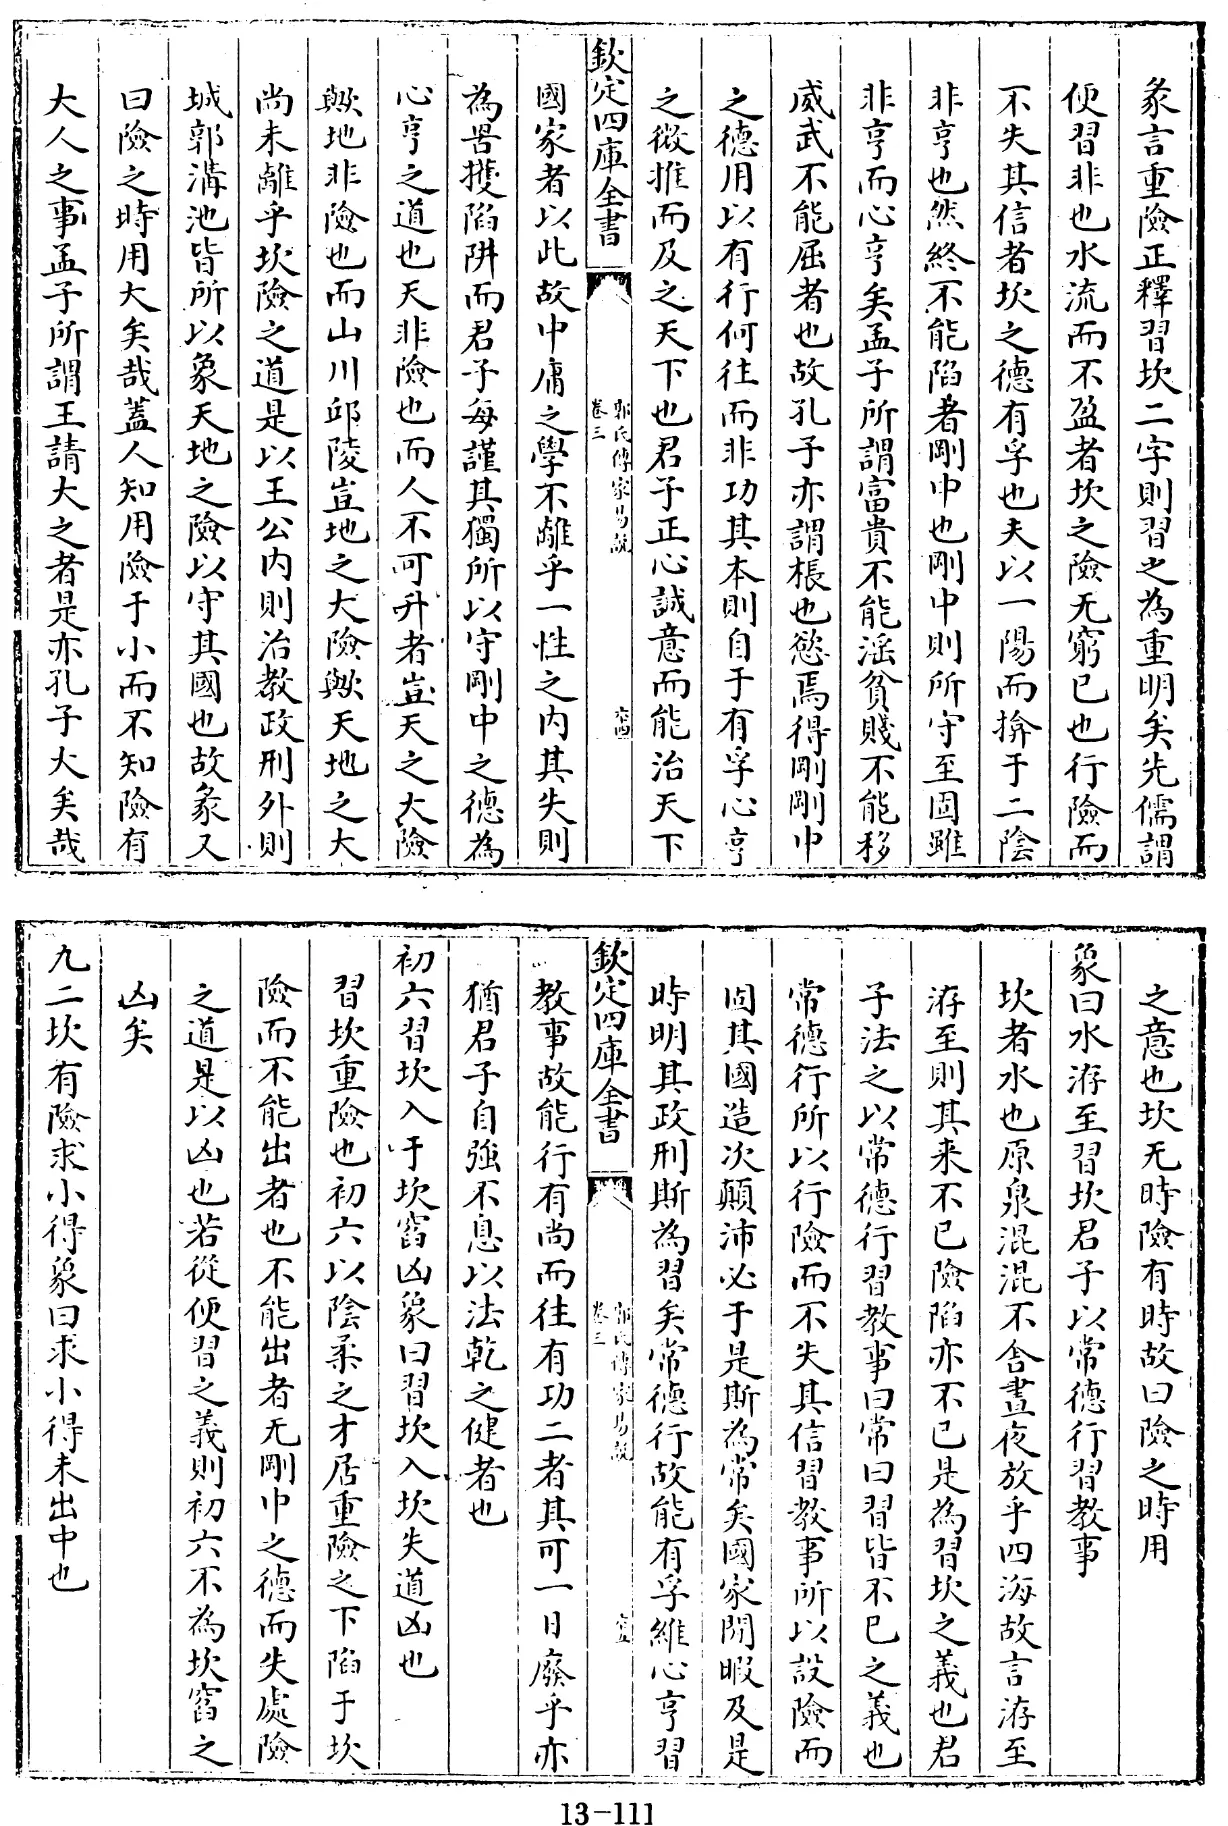 彖言重險正釋習坎二字則習之為重明矣先儒謂
便習非也水流而不盈者坎之險无窮已也行險而
不失其信者坎之德有孚也夫以一陽而揜于二陰
非亨也然終不能陷者剛中也剛中則所守至固雖
非亨而心亨矣孟子所謂富貴不能淫貧賤不能移
威武不能屈者也故孔子亦謂棖也慾焉得剛剛中
之德用以有行何往而非功其本則自于有孚心亨
之微推而及之天下也君子正心誠意而能治天下
欽定四庫全書
郭氏傳家易説
卷三
六四
國家者以此故中庸之學不離乎一性之内其失則
為罟擭陷阱而君子每謹其獨所以守剛中之德為
心亨之道也天非險也而人不可升者豈天之大險
歟地非險也而山川邱陵豈地之大險歟天地之大
尚未離乎坎險之道是以王公内則治教政刑外則
城郭溝池皆所以象天地之險以守其國也故彖又
曰險之時用大矣哉蓋人知用險于小而不知險有
大人之事孟子所謂王請大之者是亦孔子大矣哉
之意也坎无時險有時故曰險之時用
象曰水洊至習坎君子以常德行習教事
坎者水也原泉混混不舍晝夜放乎四海故言洊至
洊至則其来不已險陷亦不已是為習坎之義也君
子法之以常德行習教事曰常曰習皆不已之義也
常德行所以行險而不失其信習教事所以設險而
固其國造次顛沛必于是斯為常矣國家閒暇及是
時明其政刑斯為習矣常德行故能有孚維心亨習
欽定四庫全書
郭氏傳家易説
卷三
六五
教事故能行有尚而往有功二者其可一日廢乎亦
猶君子自強不息以法乾之健者也
初六習坎入于坎窞凶象曰習坎入坎失道凶也
習坎重險也初六以陰柔之才居重險之下陷于坎
險而不能出者也不能出者无剛中之德而失處險
之道是以凶也若從便習之義則初六不為坎窞之
凶矣
九二坎有險求小得象曰求小得未出中也
13-111